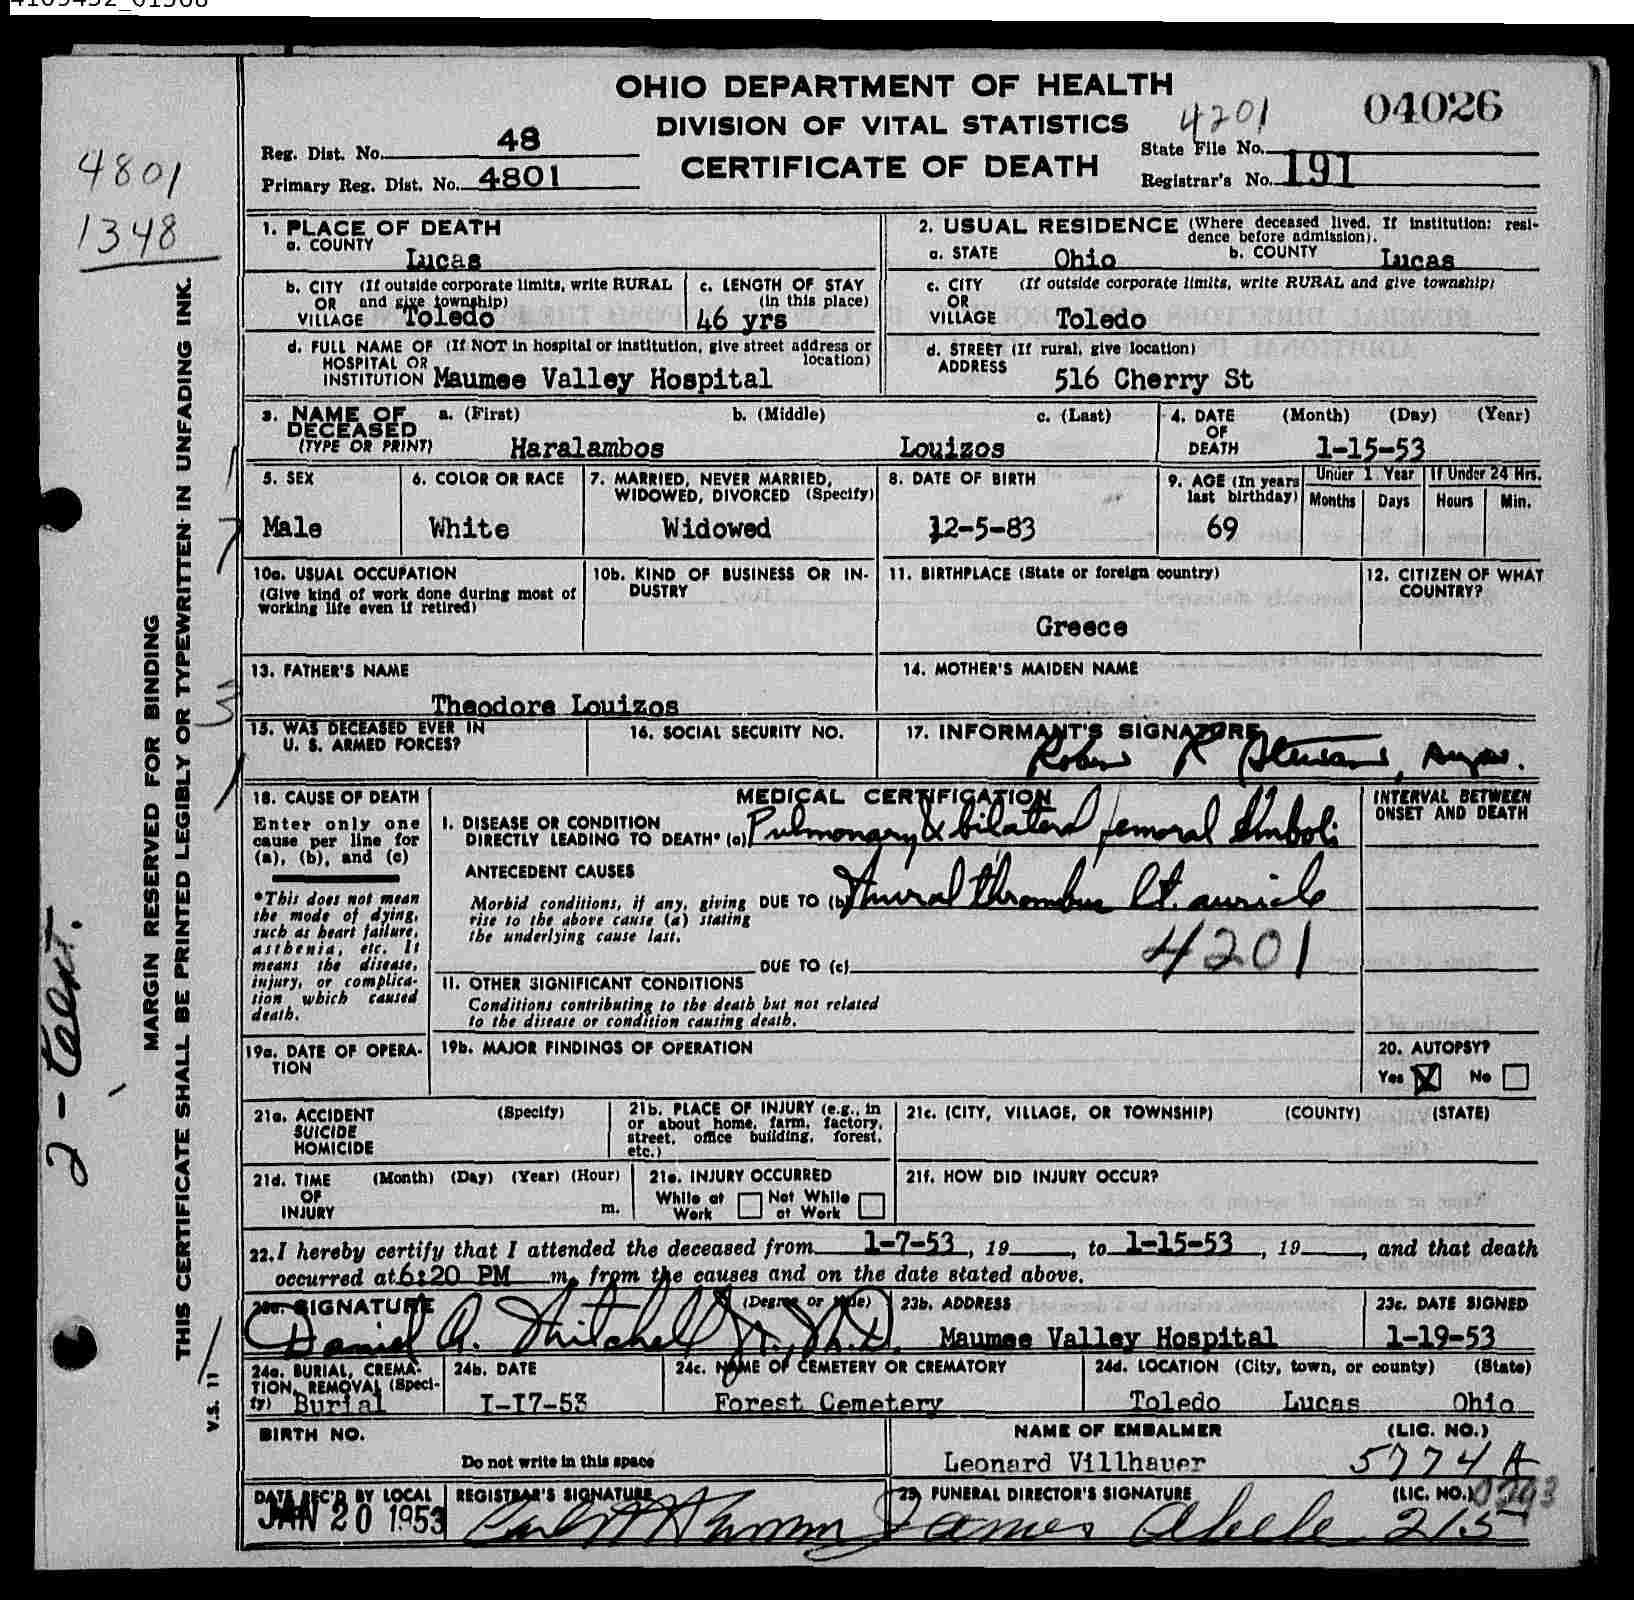 OHIO DEPARTMENT OF HEALTH
DIVISION OF VITAL STATISTICS
CERTIFICATE OF DEATH
04026
4201
Reg. Dist. No. 48
Primary Reg. Dist. No. 4801
State File No.
Registrar's No. 191
4801
1348
MARGIN RESERVED FOR BINDING
THIS CERTIFICATE SHALL BE PRINTED LEGIBLY OR TYPEWRITTEN IN UNFADING INK.
V.S. 11
1. PLACE OF DEATH
a. COUNTY
Lucas
b. CITY (If outside corporate limits, write RURAL
OR and give township)
VILLAGE Toledo
c. LENGTH OF STAY
(in this place)
46 yrs
d. FULL NAME OF (If NOT in hospital or institution, give street address or
HOSPITAL OR location)
INSTITUTION Maumee Valley Hospital
2. USUAL RESIDENCE (Where deceased lived. If institution: resi-
dence before admission).
a. STATE Ohio b. COUNTY Lucas
c. CITY (If outside corporate limits, write RURAL and give township)
OR
VILLAGE Toledo
d. STREET (If rural, give location)
ADDRESS 516 Cherry St
3. NAME OF a. (First) b. (Middle) c. (Last)
DECEASED
(TYPE OR PRINT) Haralambos Louizos
4. DATE (Month) (Day) (Year)
OF
DEATH 1-15-53
5. SEX
Male
6. COLOR OR RACE
White
7. MARRIED, NEVER MARRIED,
WIDOWED, DIVORCED (Specify)
Widowed
8. DATE OF BIRTH
12-5-83
9. AGE (In years
last birthday)
69
Under 1 Year
Months Days
If Under 24 Hrs.
Hours Min.
10a. USUAL OCCUPATION
(Give kind of work done during most of
working life even if retired)
10b. KIND OF BUSINESS OR IN-
DUSTRY
11. BIRTHPLACE (State or foreign country)
Greece
12. CITIZEN OF WHAT
COUNTRY?
13. FATHER'S NAME
Theodore Louizos
14. MOTHER'S MAIDEN NAME
15. WAS DECEASED EVER IN
U. S. ARMED FORCES?
16. SOCIAL SECURITY NO.
17. INFORMANT'S SIGNATURE
18. CAUSE OF DEATH
Enter only one
cause per line for
(a), (b), and (c)
*This does not mean
the mode of dying,
such as heart failure,
asthenia, etc. It
means the disease,
injury, or complica-
tion which caused
death.
MEDICAL CERTIFICATION
I. DISEASE OR CONDITION
DIRECTLY LEADING TO DEATH* (a) Pulmonary & bilateral femoral Emboli
ANTECEDENT CAUSES
Morbid conditions, if any, giving DUE TO (b) Mural thrombus lt. auricle
rise to the above cause (a) stating
the underlying cause last.
4201
DUE TO (c)
II. OTHER SIGNIFICANT CONDITIONS
Conditions contributing to the death but not related
to the disease or condition causing death.
INTERVAL BETWEEN
ONSET AND DEATH
19a. DATE OF OPERA-
TION
19b. MAJOR FINDINGS OF OPERATION
20. AUTOPSY?
Yes X No
21a. ACCIDENT (Specify)
SUICIDE
HOMICIDE
21b. PLACE OF INJURY (e.g., in
or about home, farm, factory,
street, office building, forest,
etc.)
21c. (CITY, VILLAGE, OR TOWNSHIP) (COUNTY) (STATE)
21d. TIME (Month) (Day) (Year) (Hour)
OF
INJURY m.
21e. INJURY OCCURRED
While at Work Not While at Work
21f. HOW DID INJURY OCCUR?
22. I hereby certify that I attended the deceased from 1-7-53, 19 , to 1-15-53, 19 , and that death
occurred at 6:20 PM m, from the causes and on the date stated above.
23a. SIGNATURE (Degree or title)
Daniel A. Mitchell Jr., M.D.
23b. ADDRESS
Maumee Valley Hospital
23c. DATE SIGNED
1-19-53
24a. BURIAL, CREMA-
TION, REMOVAL (Speci-
fy) Burial
24b. DATE
I-I7-53
24c. NAME OF CEMETERY OR CREMATORY
Forest Cemetery
24d. LOCATION (City, town, or county) (State)
Toledo Lucas Ohio
BIRTH NO.
Do not write in this space
NAME OF EMBALMER (LIC. NO.)
Leonard Villhauer 5774 A
DATE REC'D BY LOCAL
JAN 20 1953
REGISTRAR'S SIGNATURE
25. FUNERAL DIRECTOR'S SIGNATURE (LIC. NO.)
James Abele 215